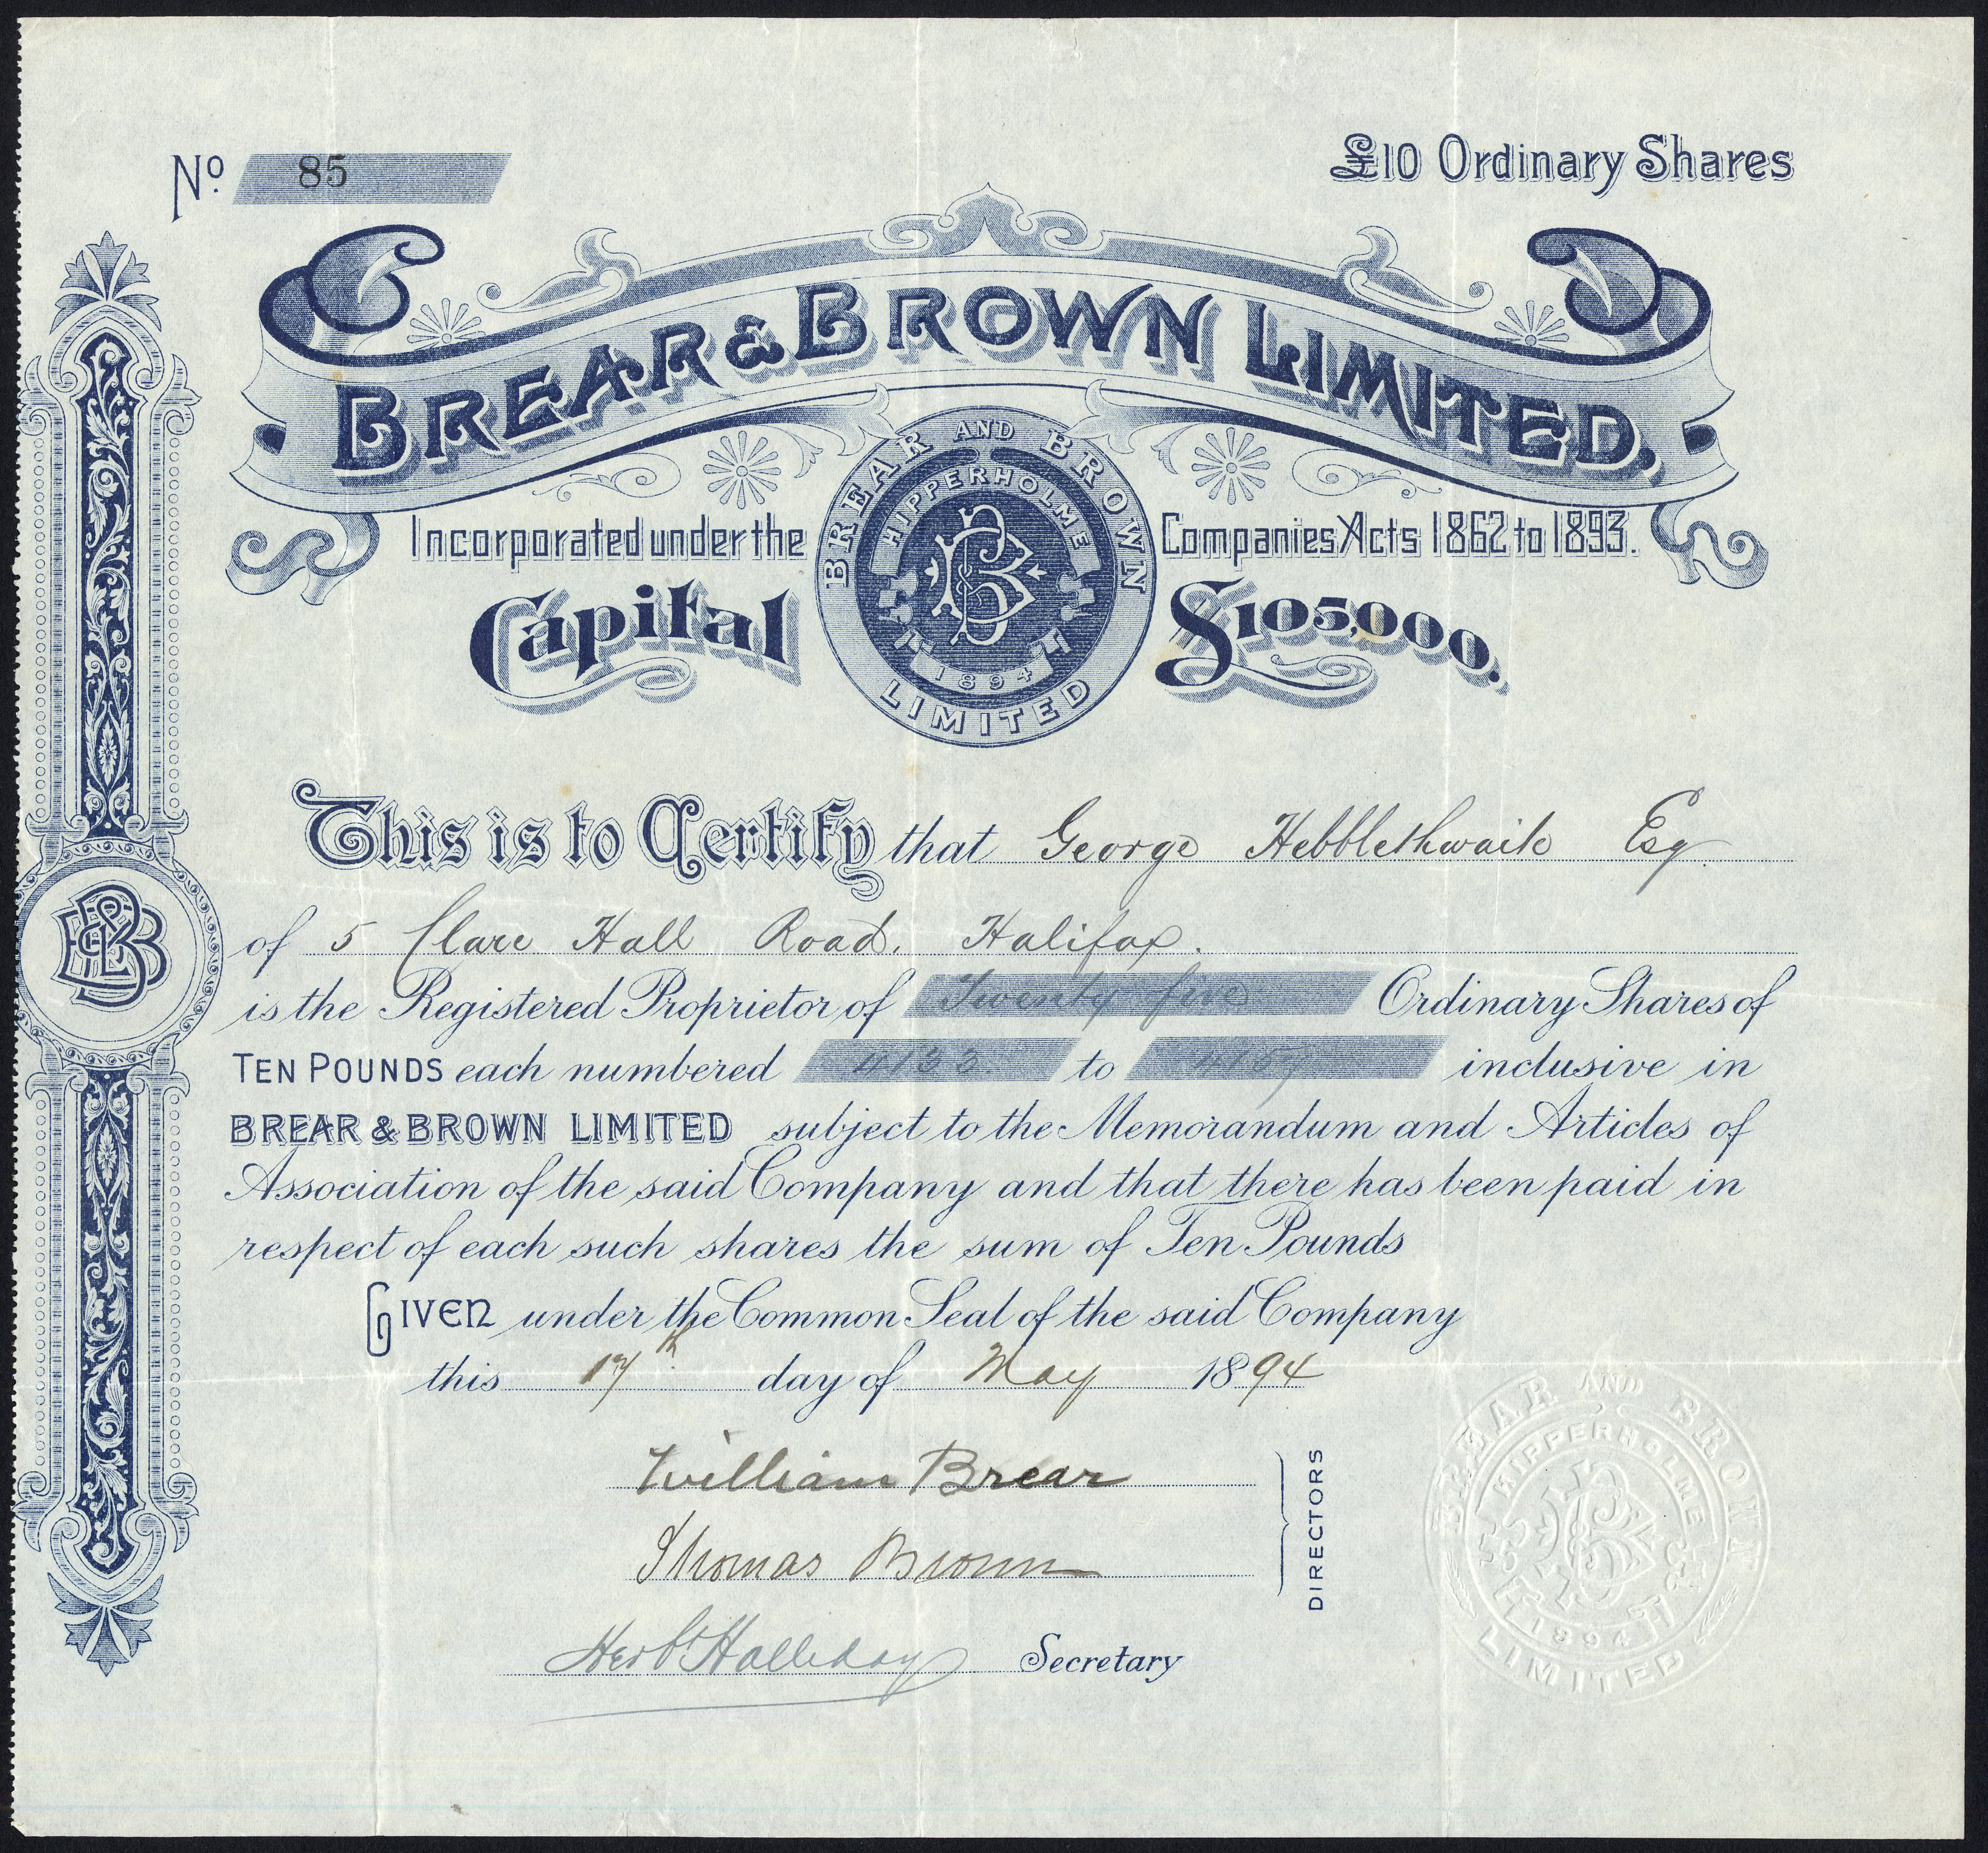 No. 85
£10 Ordinary Shares
BREAR & BROWN LIMITED.
Incorporated under the Companies Acts 1862 to 1893.
Capital £105,000.
BREAR AND BROWN
HIPPERHOLME
1894
LIMITED
This is to Certify that George Hebblethwaite Esq.
of 5 Clare Hall Road. Halifax.
is the Registered Proprietor of Twenty five Ordinary Shares of
TEN POUNDS each numbered 4133 to 4157 inclusive in
BREAR & BROWN LIMITED subject to the Memorandum and Articles of
Association of the said Company and that there has been paid in
respect of each such shares the sum of Ten Pounds
GIVEN under the Common Seal of the said Company
this 17th day of May 1894
William Brear
Thomas Brown
DIRECTORS
Herbt Halliday Secretary
BREAR AND BROWN
HIPPERHOLME
1894
LIMITED